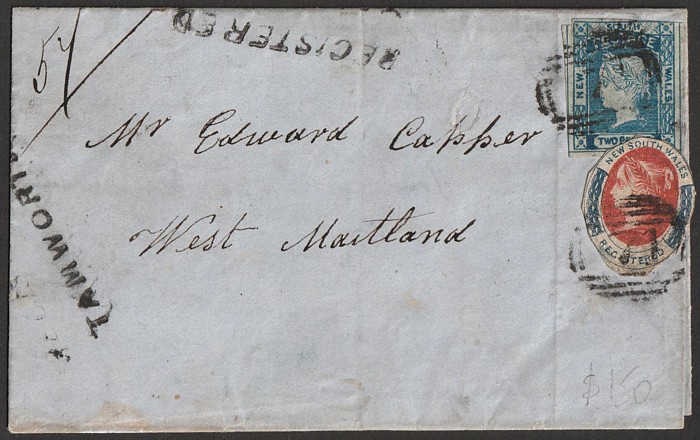 52
REGISTERED
NEW
WALES
TWO PE
Mr Edward Capper
NEW SOUTH WALES
REGISTERED
West Maitland
TAMWORTH
$150